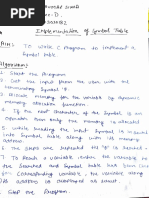 KUMAR SINGH
Implementation of Symbol Table
Aim: To write C program to implement a
Symbol table.
Algorithm:
1. Start the Program
2. Get the input from the user with the
terminating symbol '$'
3. Allocate memory for the variable by
dynamic memory allocation function.
4. If the next character of the symbol is an
operator then only the memory is allocated
5. While reading the input symbol is inserted
into symbol table along with its memory address
6. The steps are repeated till '$' is reached
7. To reach a variable, enter the variable to
be searched and symbol table has been checked
for corresponding variable, the variable along
address is displayed as result.
8. Stop the Program.